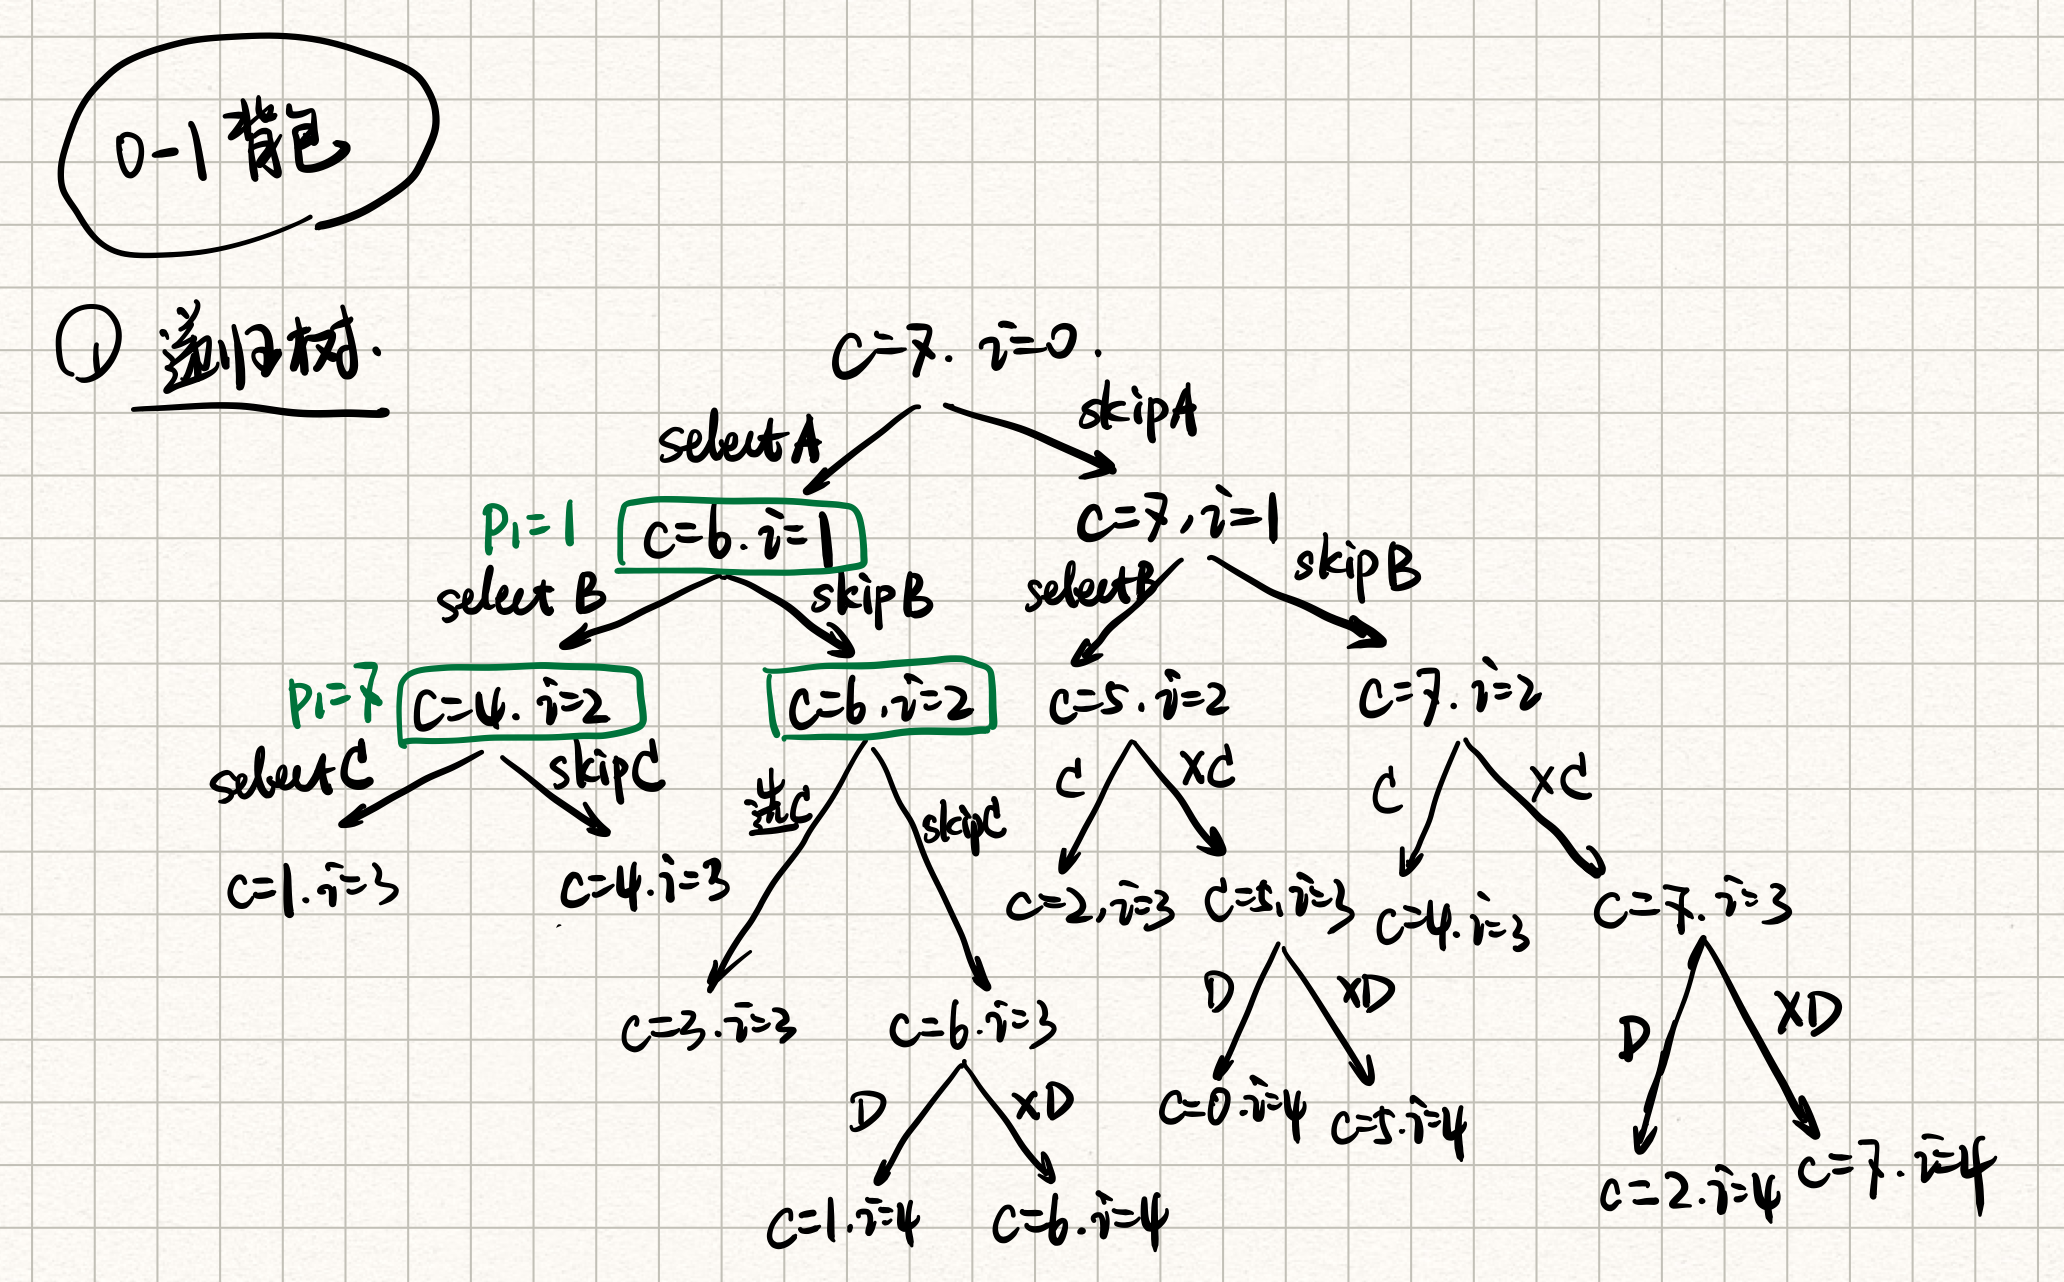 0-1背包
① 递归树.
C=7. i=0.
selectA
skipA
P₁=1
C=6. i=1
C=7, i=1
select B
skipB
selectB
skipB
P₁=7
C=4. i=2
C=6, i=2
C=5. i=2
C=7. i=2
selectC
skipC
选C
skipC
C
XC
C
XC
C=1. i=3
C=4. i=3
C=2, i=3
C=5, i=3
C=4. i=3
C=7. i=3
C=3. i=3
C=6. i=3
D
XD
D
XD
D
XD
C=0. i=4
C=5. i=4
C=2. i=4
C=7. i=4
C=1. i=4
C=6. i=4